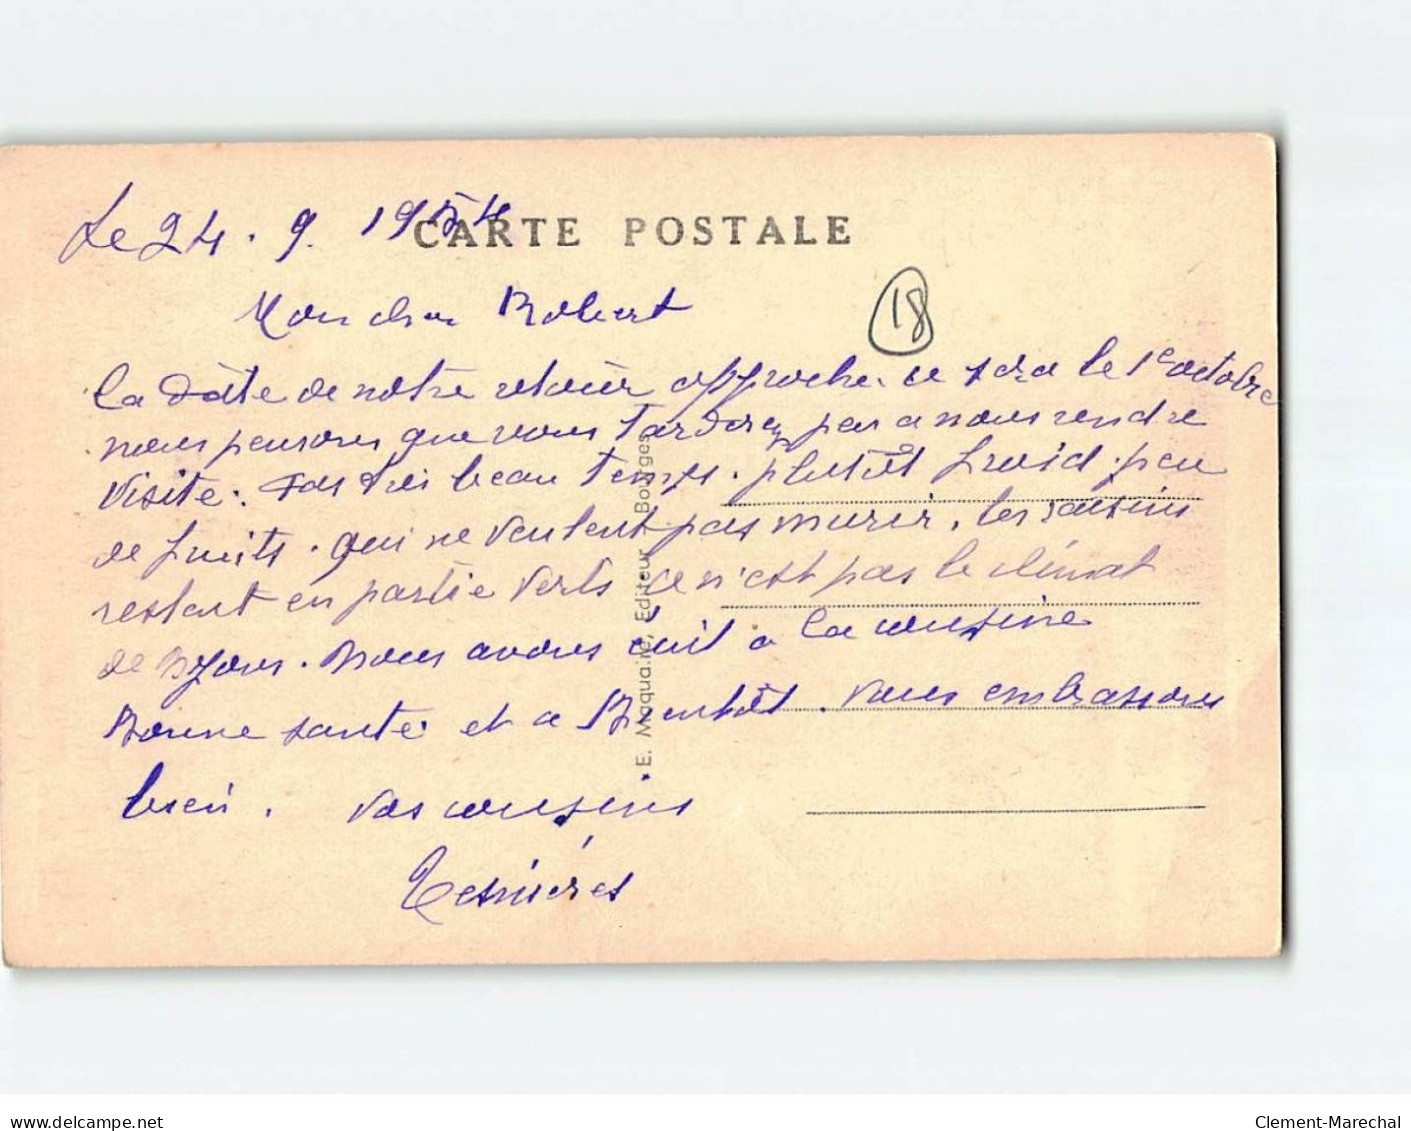 Le 24. 9. 1954
CARTE POSTALE
18
Mon cher Robert
la date de notre retour approche. ce sera le 1e octobre
nous pensons que vous tarderez pas a nous rendre
visite. Pas très beau temps. plutôt froid. peu
de fruits. qui ne veulent pas murir. les raisins
restent en partie verts ce n'est pas le climat
de Lyons. Nous avons écrit a la cousine
Bonne santé. et a Bientôt. vous embrassons
bien. vos cousins
E. Maquaire, Editeur, Bourges
delcampe.net
Clement-Marechal